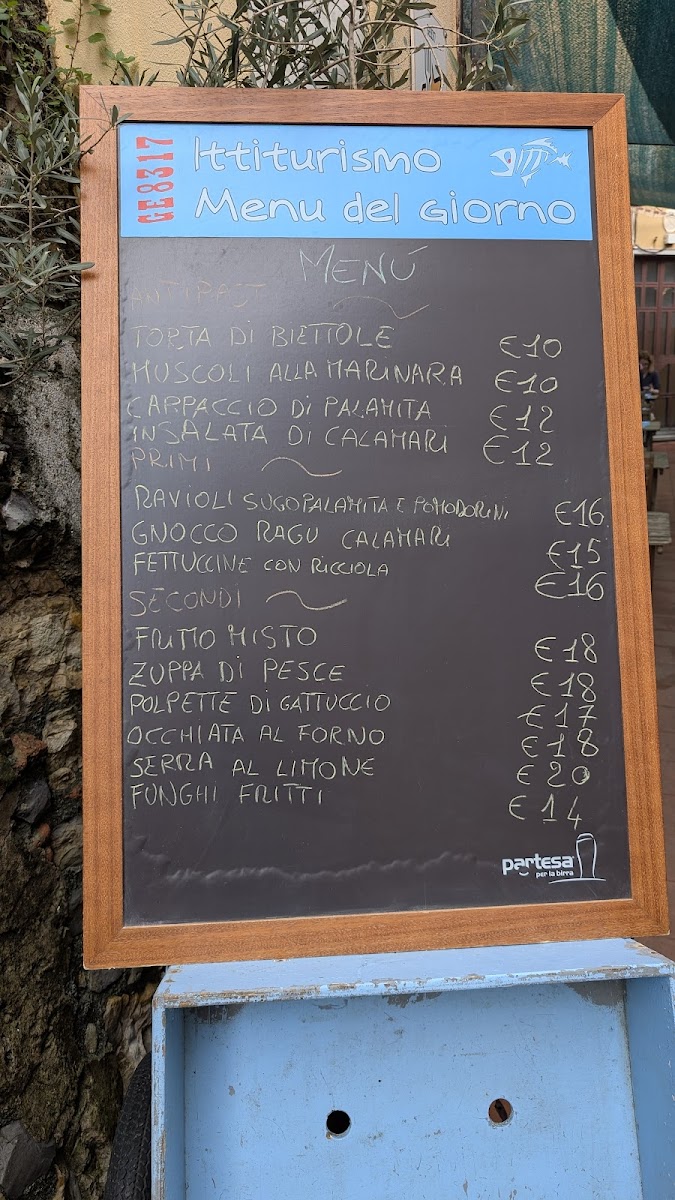 GE8317
Ittiturismo
Menu del Giorno
MENÚ
ANTIPASTI
TORTA DI BIETTOLE €10
MUSCOLI ALLA MARINARA €10
CARPACCIO Di PALAMITA €12
INSALATA DI CALAMARI €12
PRIMI
RAVIOLI SUGO PALAMITA E POMODORINI €16
GNOCCO RAGU CALAMARI €15
FETTUCCINE CON RICCIOLA €16
SECONDI
FRITTO MISTO €18
ZUPPA DI PESCE €18
POLPETTE Di GATTUCCIO €17
OCCHIATA AL FORNO €18
SERRA AL LIMONE €20
FUNGHI FRITTI €14
partesa
per la birra